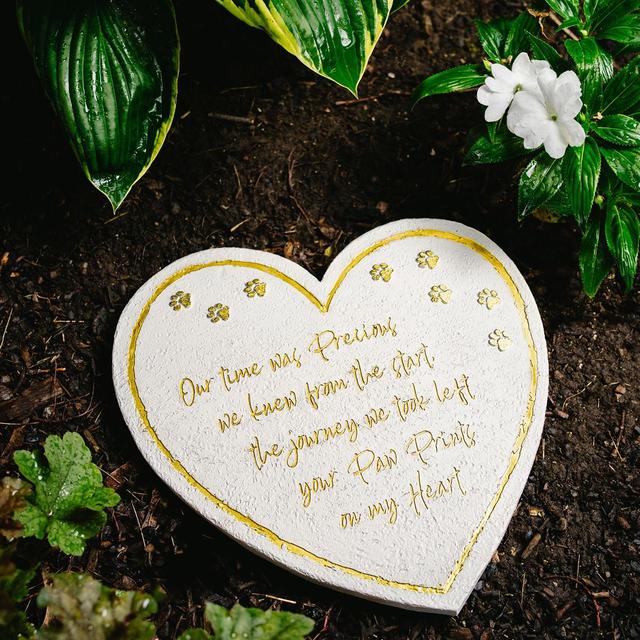 Our time was Precious
we knew from the start
the journey we took left
your Paw Prints
on my Heart